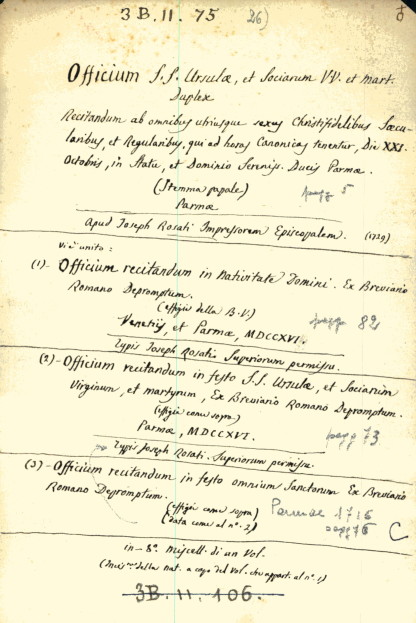 3B.II.75 26)
Officium S.S. Ursulæ, et Sociarum VV. et mart.
Duplex
Recitandum ab omnibus utriusque sexus Christifidelibus Sæcu-
laribus, et Regularibus, qui ad horas Canonicas tenentur, Die XXI.
Octobris, in Statu, et Dominio Sereniss. Ducis Parmæ.
(Stemma papale) pagg 5
Parmæ
Apud Joseph Rosati Impressorem Episcopalem. (1729)
Vi è unito:
(1)- Officium recitandum in Nativitate Domini. Ex Breviario
Romano Depromptum.
(effigie della B.V.)
Venetijs, et Parmæ, MDCCXVI. pagg 82
Typis Joseph Rosati. Superiorum permissu.
(2)- Officium recitandum in festo S.S. Ursulæ, et Sociarum
Virginum, et martyrum, Ex Breviario Romano Depromptum.
(effigie come sopra)
Parmæ, MDCCXVI. pagg 73
Typis Joseph Rosati. Superiorum permissu.
(3)- Officium recitandum in festo omnium Sanctorum Ex Breviario
Romano Depromptum.
(effigie come sopra) Parmae 1716
(data come al n°. 2) pagg 76 C
in-8°. Miscell. di un Vol.
della Nat. a capo del Vol. che appart. al n°. 1)
3B.II.106.